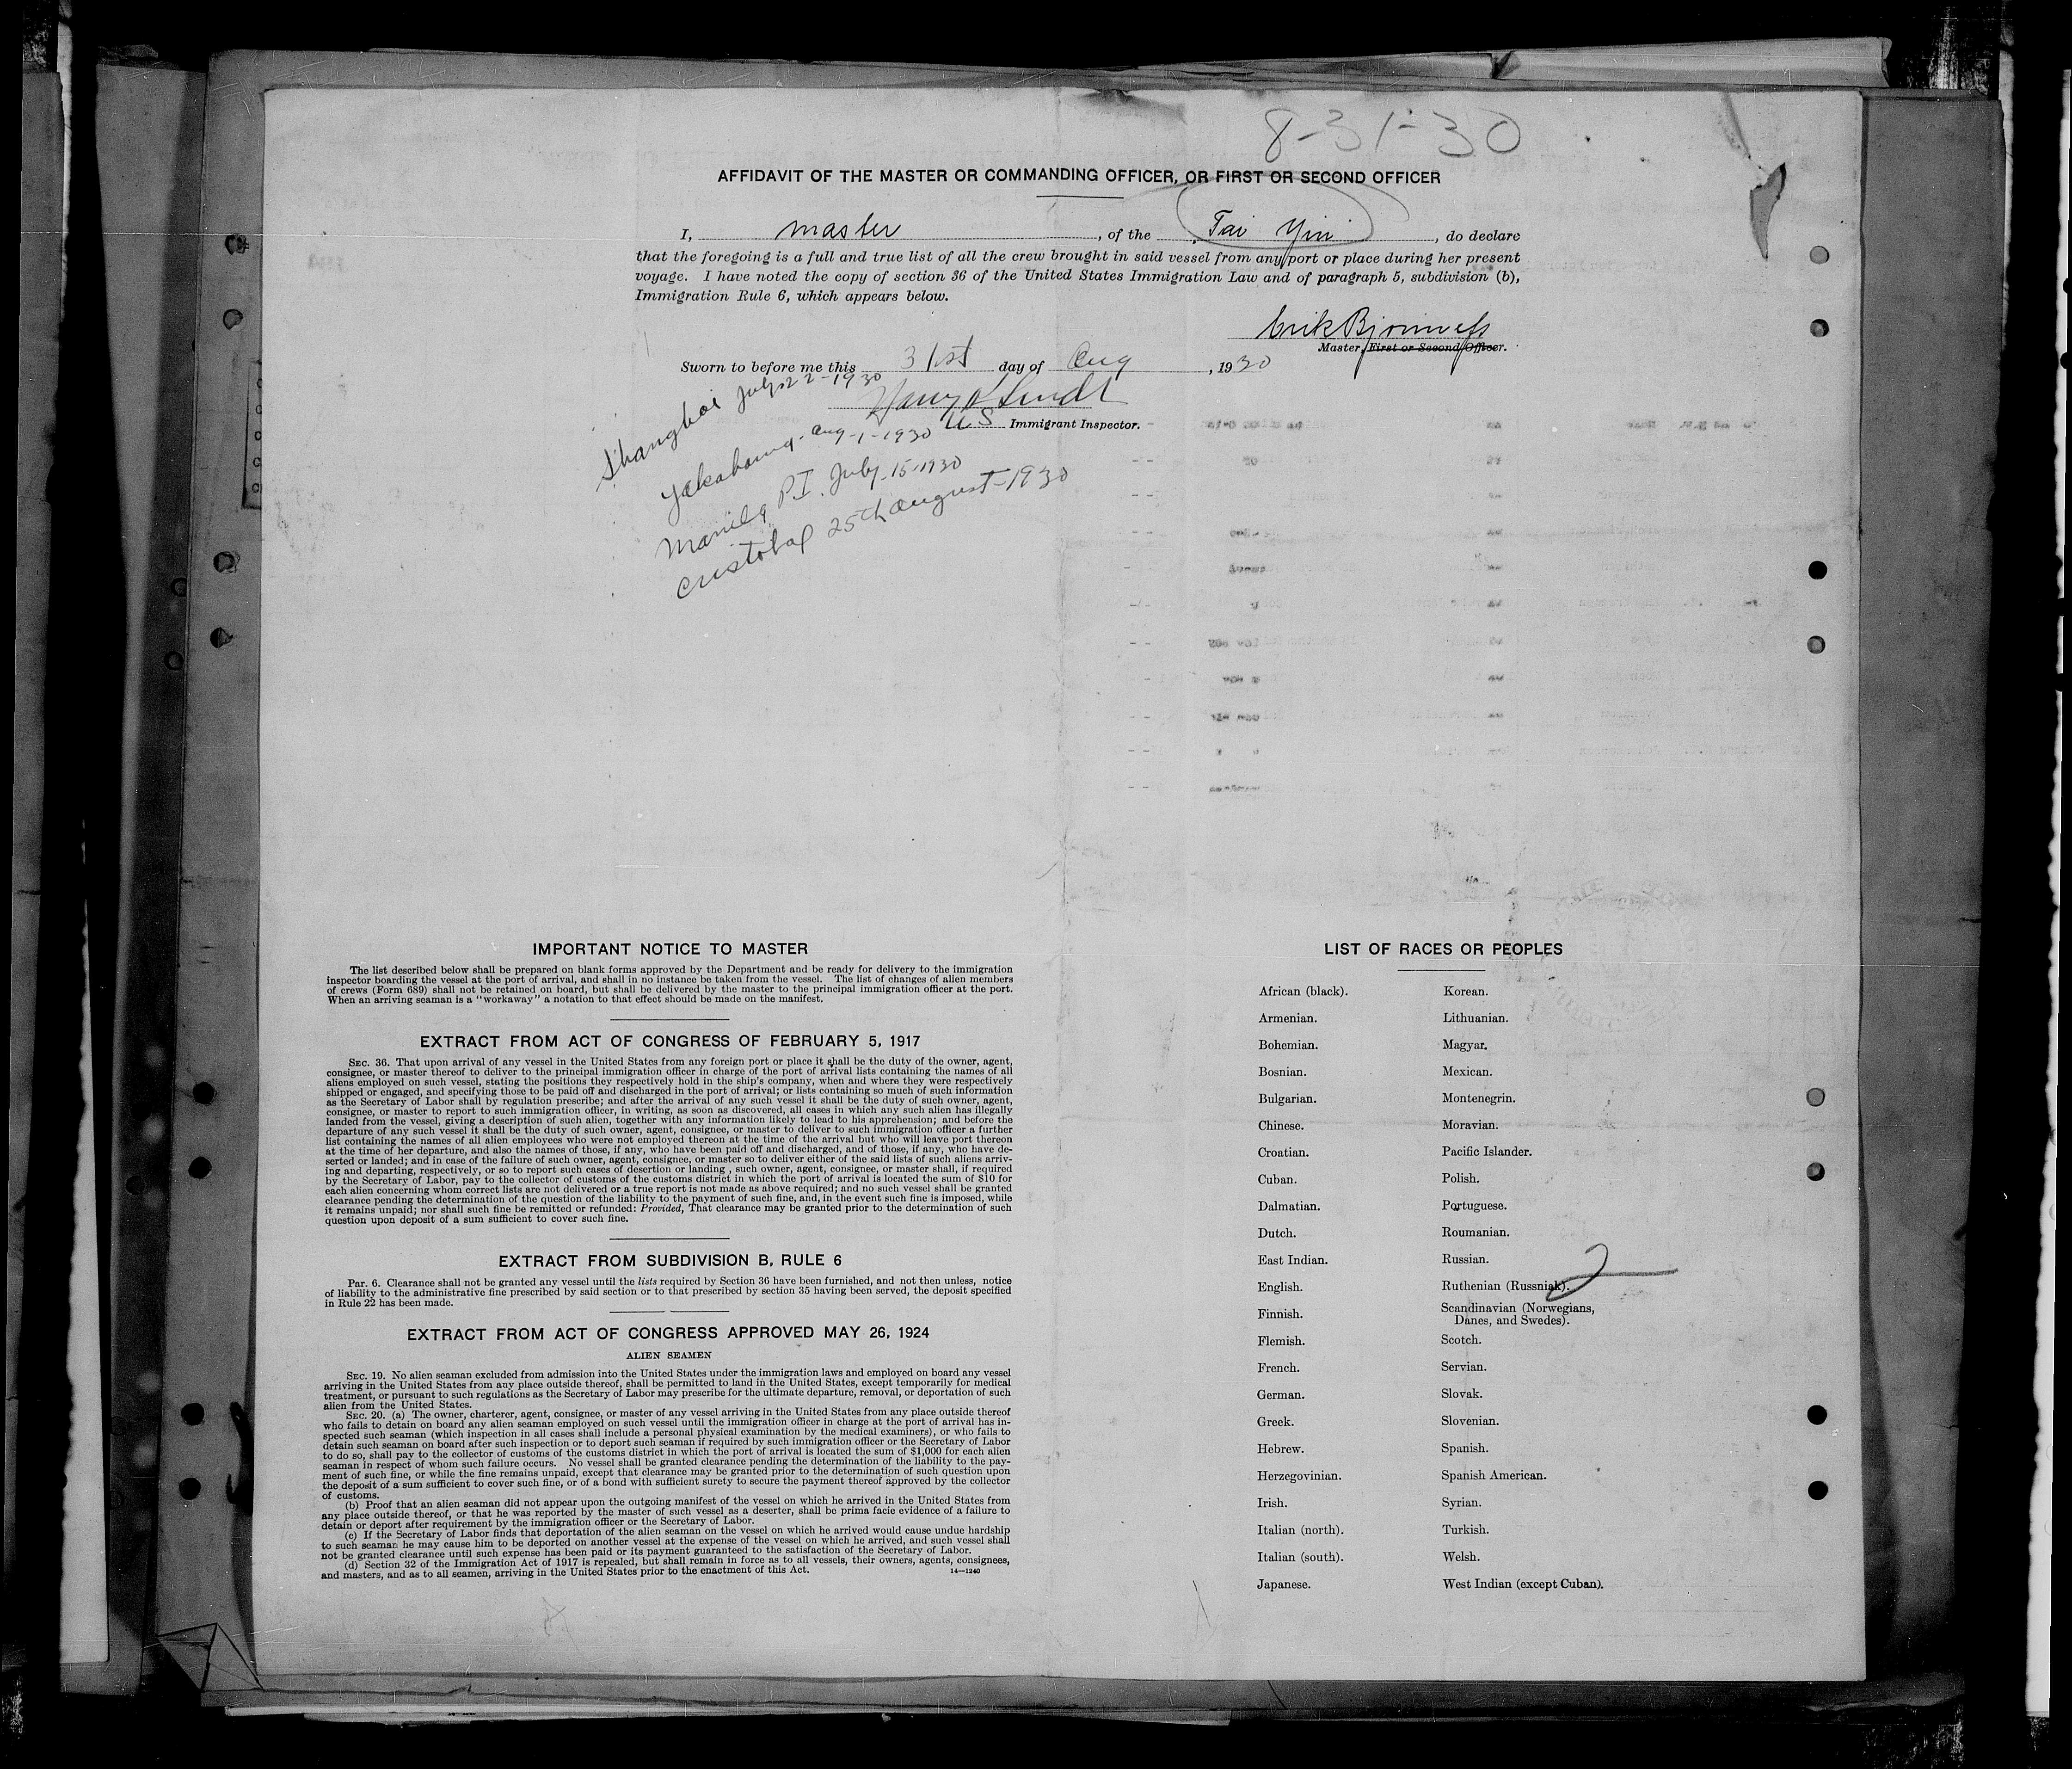 8-31-30
AFFIDAVIT OF THE MASTER OR COMMANDING OFFICER, OR FIRST OR SECOND OFFICER
I, master, of the Tai Yin, do declare
that the foregoing is a full and true list of all the crew brought in said vessel from any port or place during her present
voyage. I have noted the copy of section 36 of the United States Immigration Law and of paragraph 5, subdivision (b),
Immigration Rule 6, which appears below.
Erik
Master, First or Second Officer.
Sworn to before me this 31st day of Aug, 1930
U S Immigrant Inspector.
Shanghai July 22-1930
Yokohama - Aug-1-1930
Manila P.I. July-15-1930
Cristobal 25th august-1930
IMPORTANT NOTICE TO MASTER
The list described below shall be prepared on blank forms approved by the Department and be ready for delivery to the immigration
inspector boarding the vessel at the port of arrival, and shall in no instance be taken from the vessel. The list of changes of alien members
of crews (Form 689) shall not be retained on board, but shall be delivered by the master to the principal immigration officer at the port.
When an arriving seaman is a "workaway" a notation to that effect should be made on the manifest.
EXTRACT FROM ACT OF CONGRESS OF FEBRUARY 5, 1917
SEC. 36. That upon arrival of any vessel in the United States from any foreign port or place it shall be the duty of the owner, agent,
consignee, or master thereof to deliver to the principal immigration officer in charge of the port of arrival lists containing the names of all
aliens employed on such vessel, stating the positions they respectively hold in the ship's company, when and where they were respectively
shipped or engaged, and specifying those to be paid off and discharged in the port of arrival; or lists containing so much of such information
as the Secretary of Labor shall by regulation prescribe; and after the arrival of any such vessel it shall be the duty of such owner, agent,
consignee, or master to report to such immigration officer, in writing, as soon as discovered, all cases in which any such alien has illegally
landed from the vessel, giving a description of such alien, together with any information likely to lead to his apprehension; and before the
departure of any such vessel it shall be the duty of such owner, agent, consignee, or master to deliver to such immigration officer a further
list containing the names of all alien employees who were not employed thereon at the time of the arrival but who will leave port thereon
at the time of her departure, and also the names of those, if any, who have been paid off and discharged, and of those, if any, who have de-
serted or landed; and in case of the failure of such owner, agent, consignee, or master so to deliver either of the said lists of such aliens arriv-
ing and departing, respectively, or so to report such cases of desertion or landing , such owner, agent, consignee, or master shall, if required
by the Secretary of Labor, pay to the collector of customs of the customs district in which the port of arrival is located the sum of $10 for
each alien concerning whom correct lists are not delivered or a true report is not made as above required; and no such vessel shall be granted
clearance pending the determination of the question of the liability to the payment of such fine, and, in the event such fine is imposed, while
it remains unpaid; nor shall such fine be remitted or refunded: Provided, That clearance may be granted prior to the determination of such
question upon deposit of a sum sufficient to cover such fine.
EXTRACT FROM SUBDIVISION B, RULE 6
Par. 6. Clearance shall not be granted any vessel until the lists required by Section 36 have been furnished, and not then unless, notice
of liability to the administrative fine prescribed by said section or to that prescribed by section 35 having been served, the deposit specified
in Rule 22 has been made.
EXTRACT FROM ACT OF CONGRESS APPROVED MAY 26, 1924
ALIEN SEAMEN
SEC. 19. No alien seaman excluded from admission into the United States under the immigration laws and employed on board any vessel
arriving in the United States from any place outside thereof, shall be permitted to land in the United States, except temporarily for medical
treatment, or pursuant to such regulations as the Secretary of Labor may prescribe for the ultimate departure, removal, or deportation of such
alien from the United States.
SEC. 20. (a) The owner, charterer, agent, consignee, or master of any vessel arriving in the United States from any place outside thereof
who fails to detain on board any alien seaman employed on such vessel until the immigration officer in charge at the port of arrival has in-
spected such seaman (which inspection in all cases shall include a personal physical examination by the medical examiners), or who fails to
detain such seaman on board after such inspection or to deport such seaman if required by such immigration officer or the Secretary of Labor
to do so, shall pay to the collector of customs of the customs district in which the port of arrival is located the sum of $1,000 for each alien
seaman in respect of whom such failure occurs. No vessel shall be granted clearance pending the determination of the liability to the pay-
ment of such fine, or while the fine remains unpaid, except that clearance may be granted prior to the determination of such question upon
the deposit of a sum sufficient to cover such fine, or of a bond with sufficient surety to secure the payment thereof approved by the collector
of customs.
(b) Proof that an alien seaman did not appear upon the outgoing manifest of the vessel on which he arrived in the United States from
any place outside thereof, or that he was reported by the master of such vessel as a deserter, shall be prima facie evidence of a failure to
detain or deport after requirement by the immigration officer or the Secretary of Labor.
(c) If the Secretary of Labor finds that deportation of the alien seaman on the vessel on which he arrived would cause undue hardship
to such seaman he may cause him to be deported on another vessel at the expense of the vessel on which he arrived, and such vessel shall
not be granted clearance until such expense has been paid or its payment guaranteed to the satisfaction of the Secretary of Labor.
(d) Section 32 of the Immigration Act of 1917 is repealed, but shall remain in force as to all vessels, their owners, agents, consignees,
and masters, and as to all seamen, arriving in the United States prior to the enactment of this Act. 14—1240
LIST OF RACES OR PEOPLES
African (black).
Armenian.
Bohemian.
Bosnian.
Bulgarian.
Chinese.
Croatian.
Cuban.
Dalmatian.
Dutch.
East Indian.
English.
Finnish.
Flemish.
French.
German.
Greek.
Hebrew.
Herzegovinian.
Irish.
Italian (north).
Italian (south).
Japanese.
Korean.
Lithuanian.
Magyar.
Mexican.
Montenegrin.
Moravian.
Pacific Islander.
Polish.
Portuguese.
Roumanian.
Russian.
Ruthenian (Russniak).
Scandinavian (Norwegians,
Danes, and Swedes).
Scotch.
Servian.
Slovak.
Slovenian.
Spanish.
Spanish American.
Syrian.
Turkish.
Welsh.
West Indian (except Cuban).
2